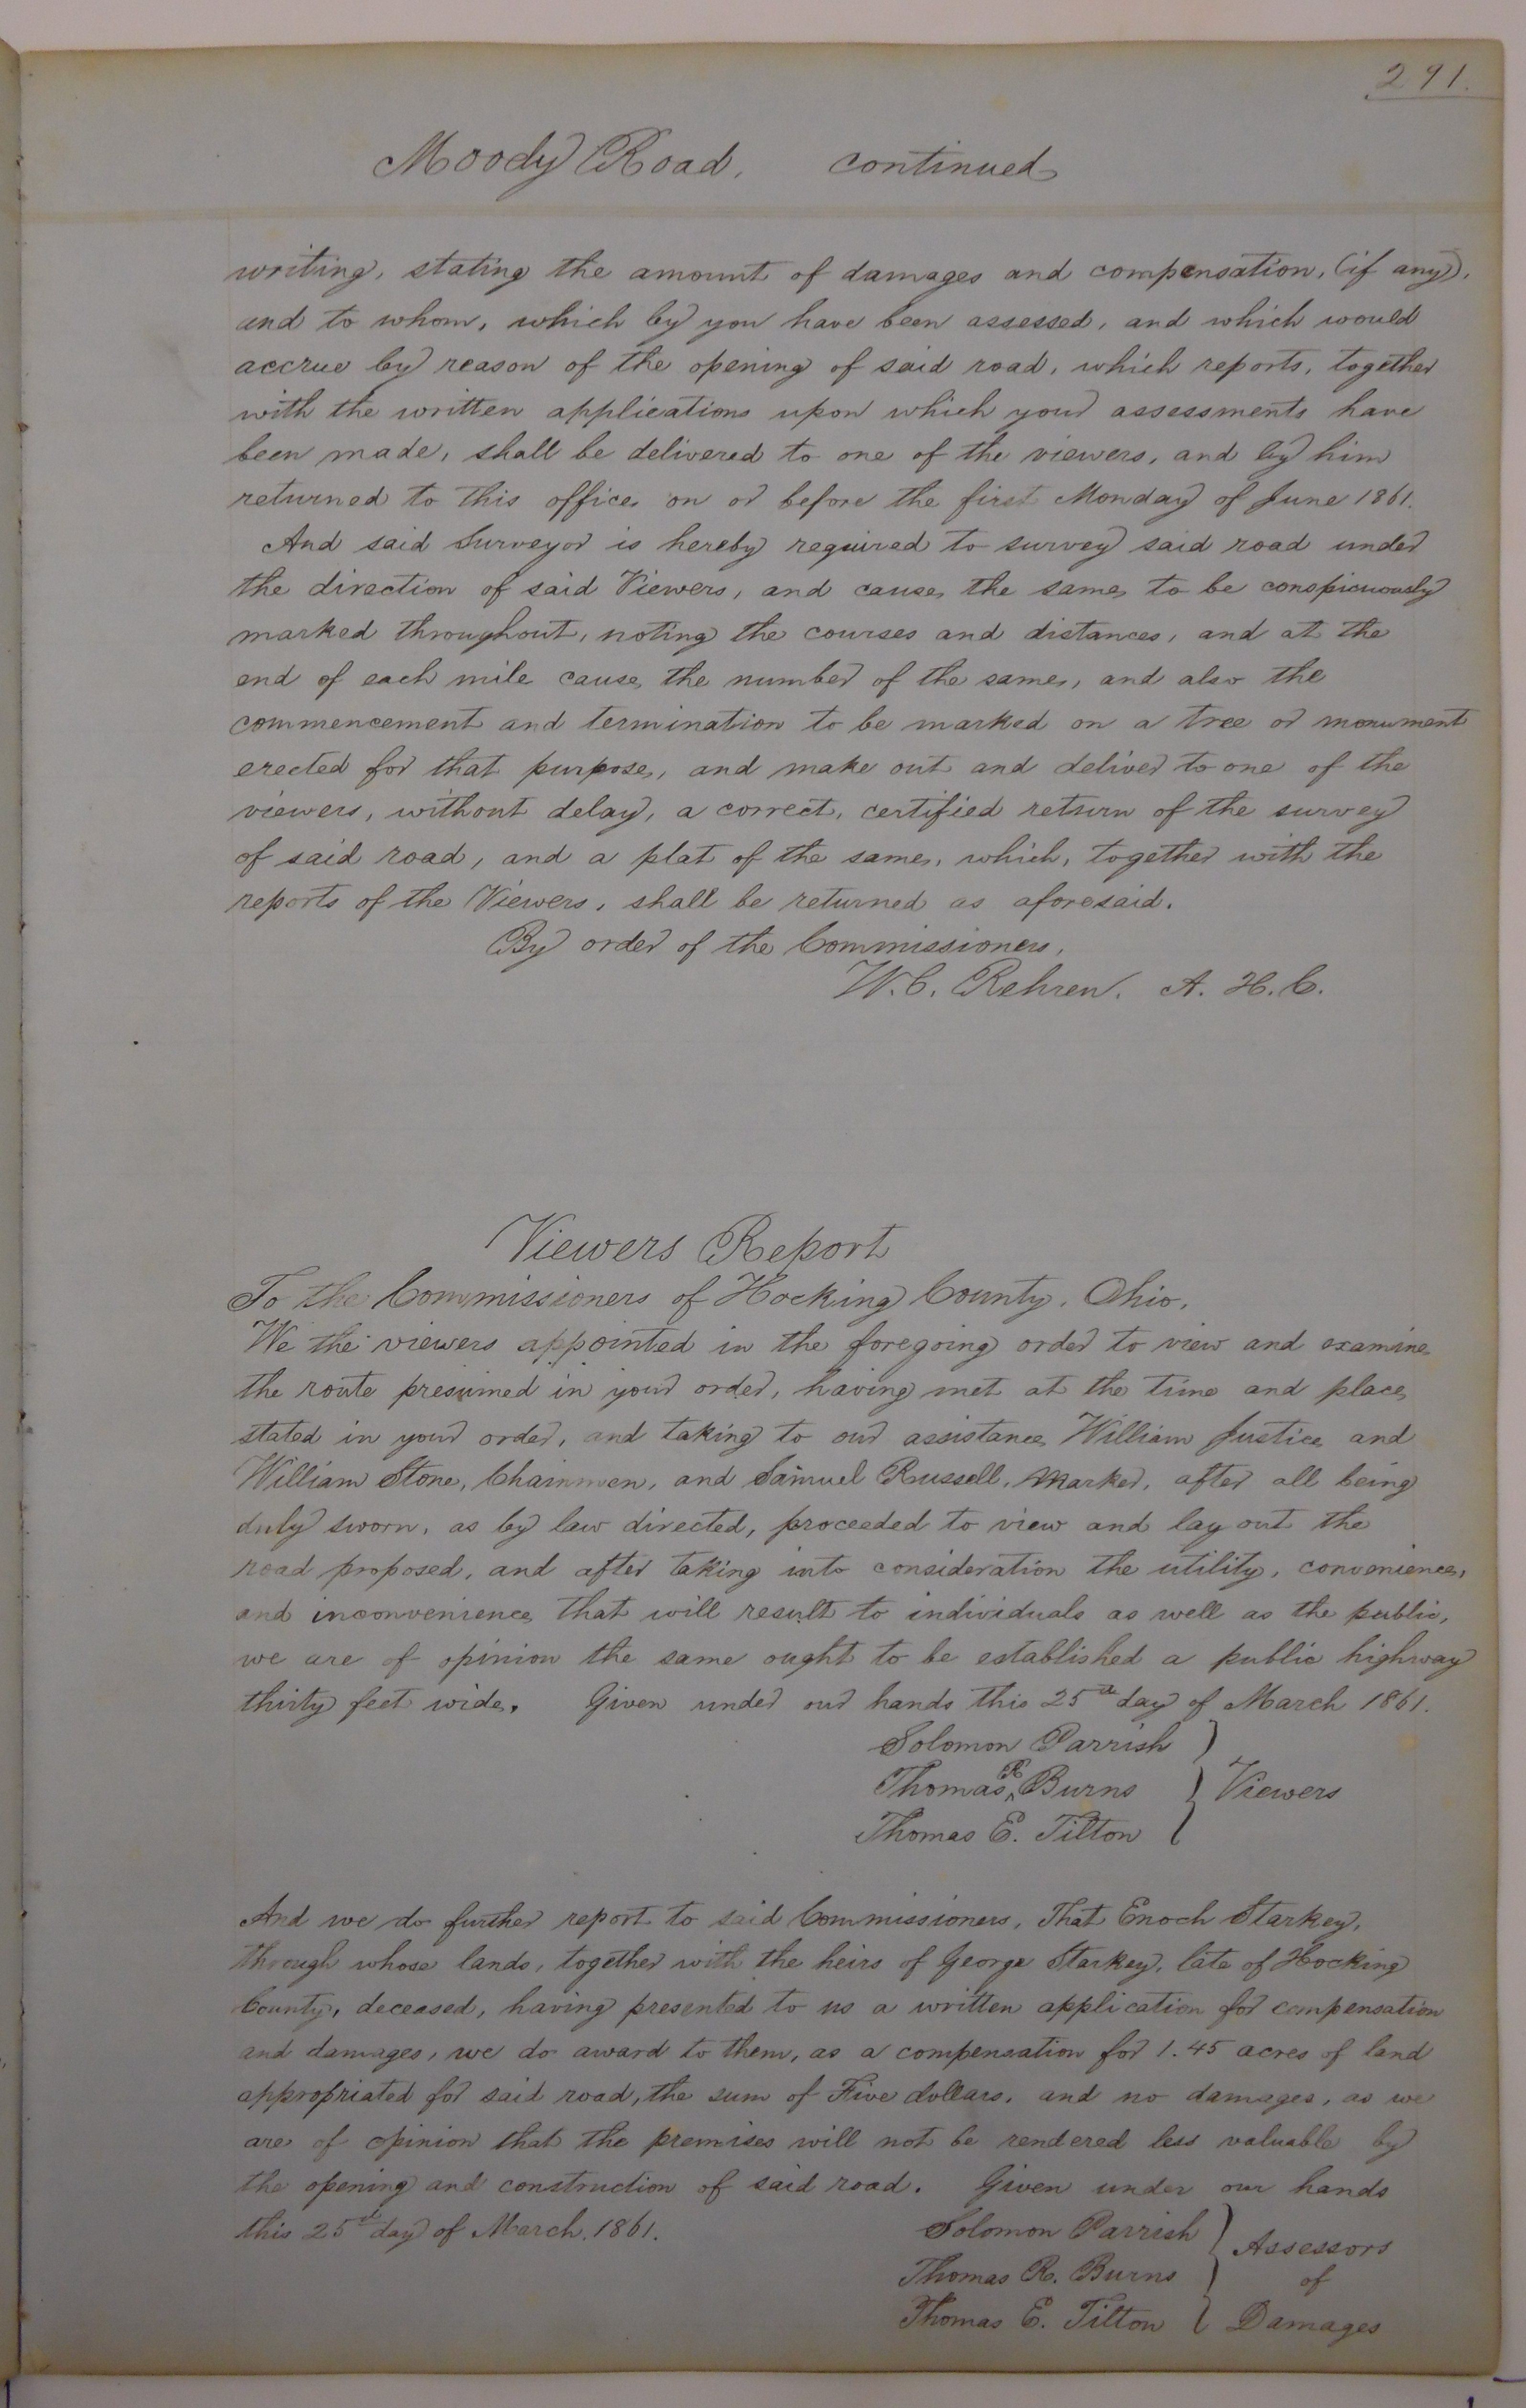 291.
Moody Road, continued
writing, stating the amount of damages and compensation, (if any),
and to whom, which by you have been assessed, and which would
accrue by reason of the opening of said road, which reports, together
with the written applications upon which your assessments have
been made, shall be delivered to one of the viewers, and by him
returned to this office on or before the first Monday of June 1861.
And said Surveyor is hereby required to survey said road under
the direction of said Viewers, and cause the same to be conspicuously
marked throughout, noting the courses and distances, and at the
end of each mile cause the number of the same, and also the
commencement and termination to be marked on a tree or monument
erected for that purpose, and make out and deliver to one of the
viewers, without delay, a correct, certified return of the survey
of said road, and a plat of the same, which, together with the
reports of the Viewers, shall be returned as aforesaid.
By order of the Commissioners,
W. C. Rehren. A. H. C.
Viewers Report
To the Commissioners of Hocking County, Ohio,
We the viewers appointed in the foregoing order to view and examine
the route presumed in your order, having met at the time and place
stated in your order, and taking to our assistance William Justice and
William Stone, Chainmen, and Samuel Russell, Marker, after all being
duly sworn, as by law directed, proceeded to view and lay out the
road proposed, and after taking into consideration the utility, convenience,
and inconvenience that will result to individuals as well as the public,
we are of opinion the same ought to be established a public highway
thirty feet wide. Given under our hands this 25th day of March 1861.
Solomon Parrish
Thomas R Burns } Viewers
Thomas E. Tilton
And we do further report to said Commissioners, That Enoch Starkey,
through whose lands, together with the heirs of George Starkey, late of Hocking
County, deceased, having presented to us a written application for compensation
and damages, we do award to them, as a compensation for 1.45 acres of land
appropriated for said road, the sum of Five dollars, and no damages, as we
are of opinion that the premises will not be rendered less valuable by
the opening and construction of said road. Given under our hands
this 25th day of March, 1861.
Solomon Parrish } Assessors
Thomas R. Burns } of
Thomas E. Tilton } Damages